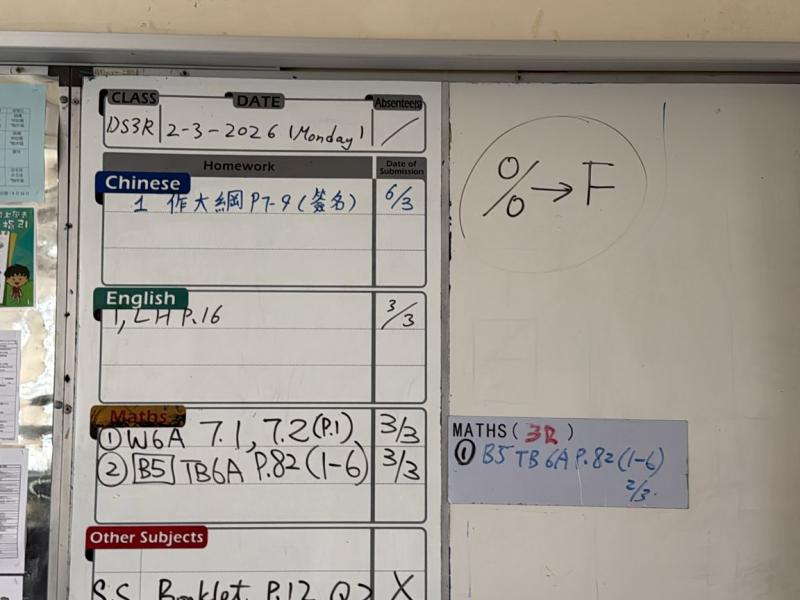 CLASS DATE Absentee(s)
DS3R 2-3-2026 (Monday) /
Homework Date of Submission
Chinese
1 作大綱 P7-9 (簽名) 6/3
English
1, LH P.16 3/3
Maths
① W6A 7.1, 7.2 (P.1) 3/3
② B5 TB6A P.82 (1-6) 3/3
Other Subjects
S.S Booklet P.12 Q2 X
% → F
MATHS( 3R )
① B5 TB 6A P.82 (1-6)
2/3.